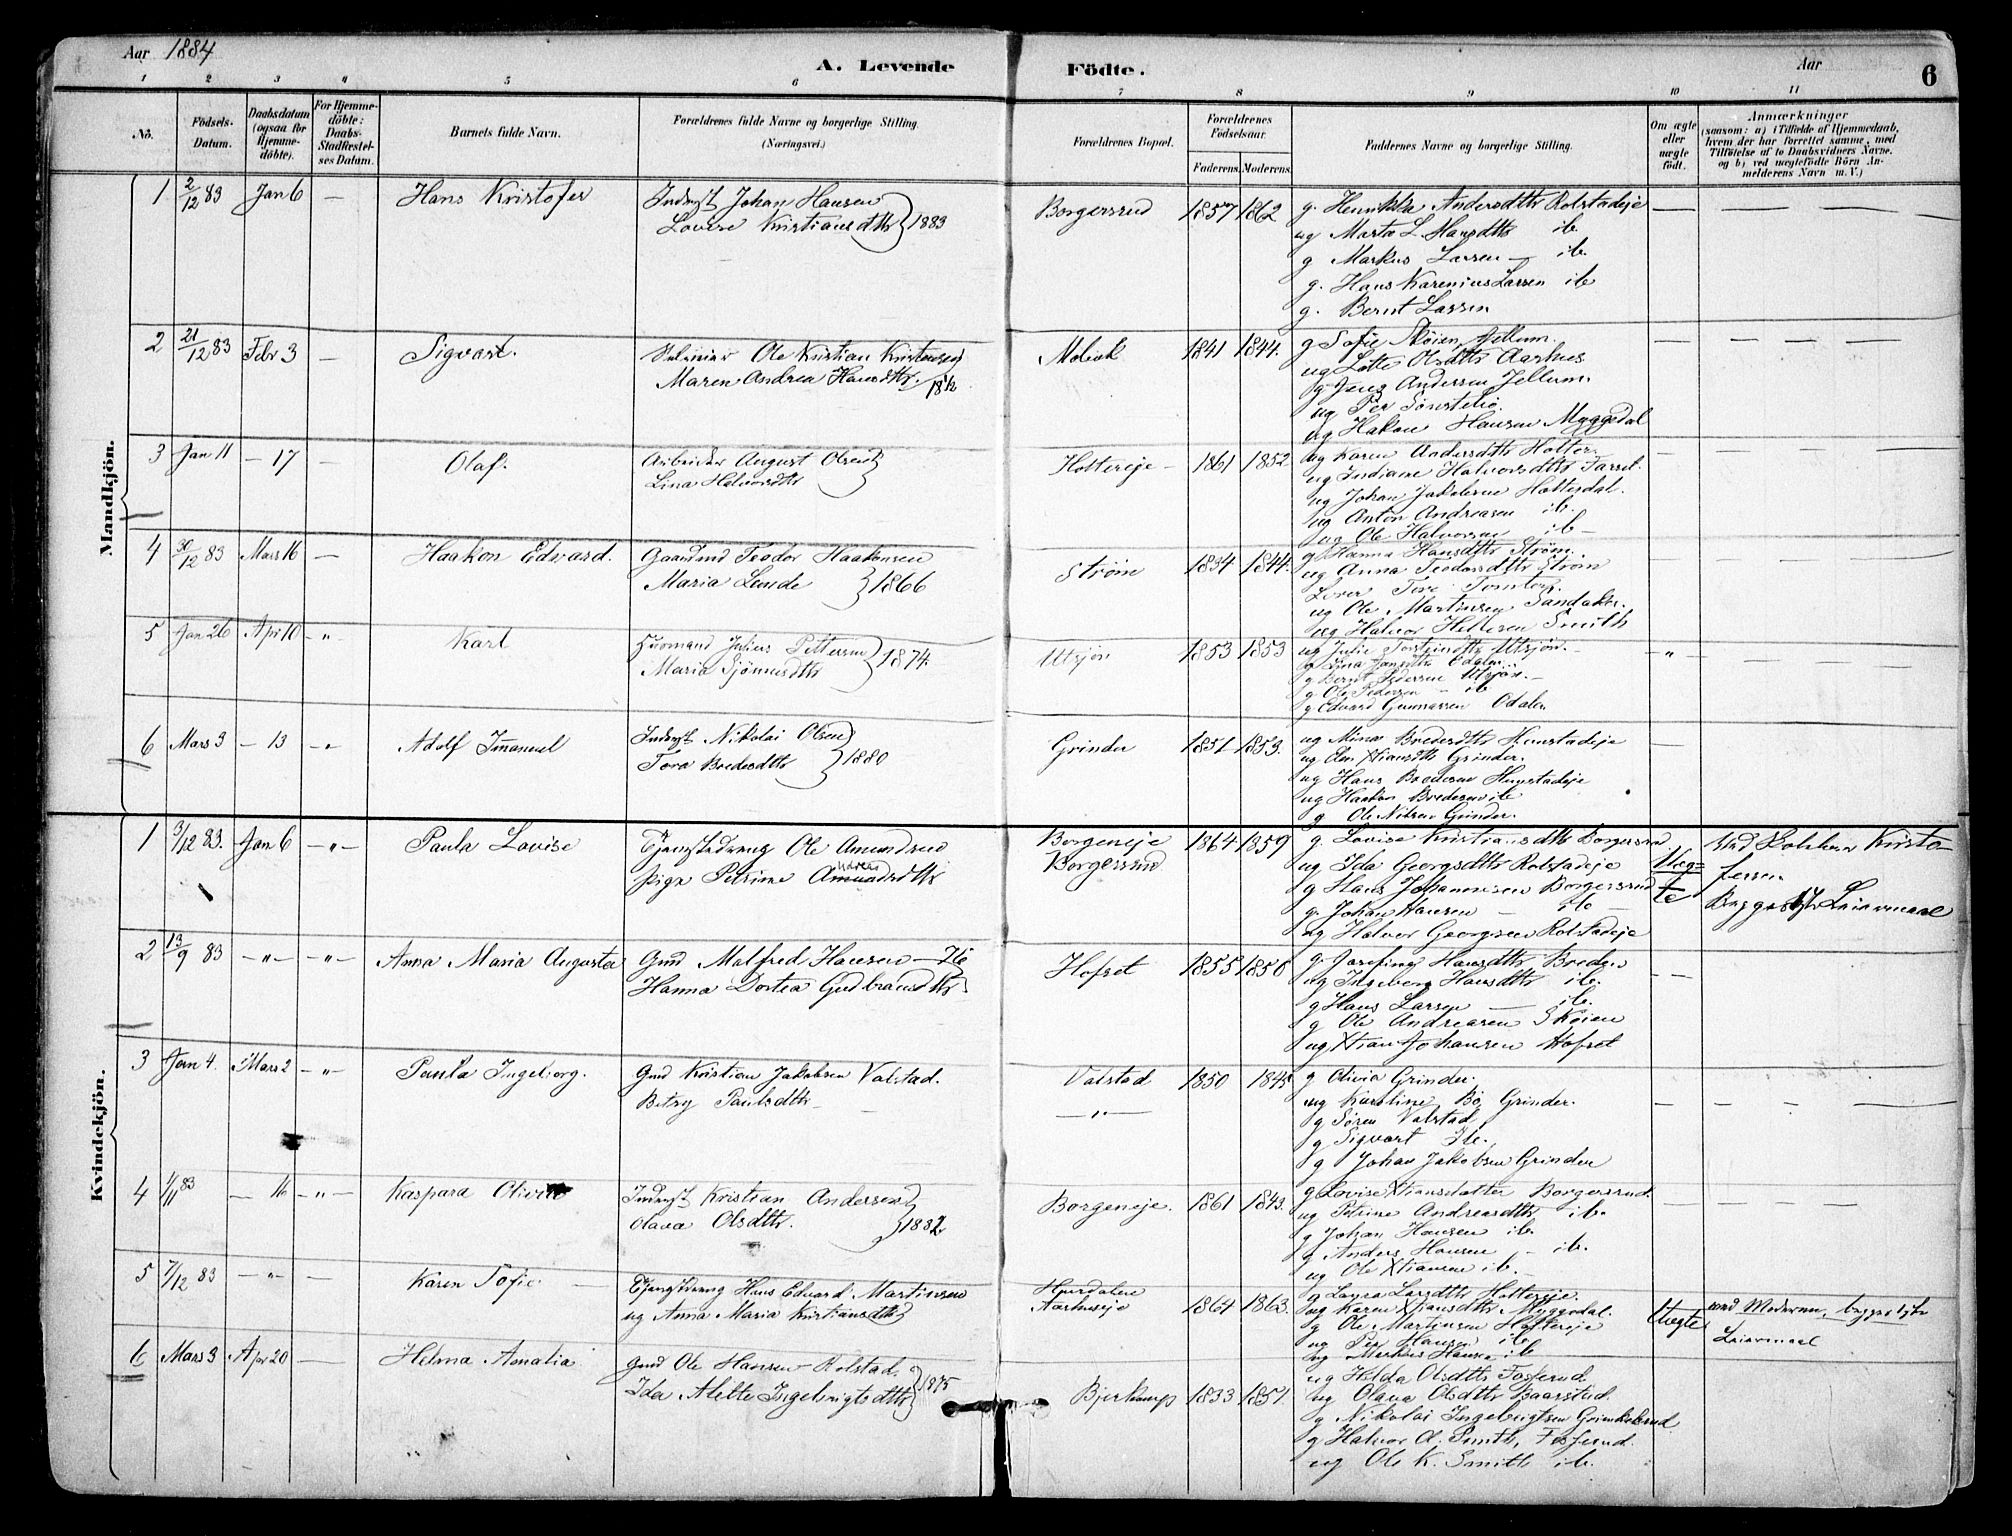 Aar 1884
A. Levende Födte.
Aar
6
1 2 3 4 5 6 7 8 9 10 11
No.
Födsels-Datum.
Daabsdatum (ogsaa for Hjemmedöbte).
For Hjemmedöbte: Daabs-Stadfæstelses Datum.
Barnets fulde Navn.
Forældrenes fulde Navne og borgerlige Stilling. (Næringsvei.)
Forældrenes Bopæl.
Forældrenes Födselsaar.
Faderens. Moderens.
Faddernes Navne og borgerlige Stilling.
Om ægte eller uægte födt.
Anmærkninger
(saasom: a) i Tilfælde af Hjemmedaab, hvem der har forrettet samme, med Tilföielse af to Daabsvidners Navne, og b) ved uægtefödte Börn Anmelderens Navn m. V.)
Mandkjön.
1 2/12 83 Jan 6 — Hans Kristofer
Inderst Johan Hansen
Lovise Kristiansdtr } 1883
Borgersrud 1857 1862
g. Henrikka Andersdtr Rolstadeje
ug Marta L. Hansdtr ib
g Markus Larsen — ib.
g. Hans Karenius Larsen ib
g. Bernt Larsen
2 21/12 83 Febr 3 — Sigvart.
Ole Kristian Kristensen
Maren Andrea Hansdtr.
1841 1844.
g Sofie Skøien, Jellum.
ug Lotte Olsdtr Aarhus
g Jens Andersen Jellum.
ug Per Sønstelie.
ug Hakon Hansen Myggedal
3 Jan 11 — 17 — Olaf.
Arbeider August Olsen
Lina Halvorsdtr
Holtereje — 1861 1852
ug Karen Andersdtr Holter
ug Indiane Halvorsdtr
ug Johan Jakobsen Holterdal.
ug Anton Andreasen ib.
ug Ole Halvorsen ib —
4 30/12 83 Mars 16 — Haakon Edvard.
Gaardmd Teodor Haakensen
Maria Lunde } 1866
Strøm 1834 1844.
g Hanna Hansdtr Strøm.
ug Anna Teodorsdtr Strøm
Tomter.
ug Ole Martinsen Sandaker.
ug Halvor Smith
5 Jan 26 Apr 10 — " Karl
Husmand Julius Pettersen
Maria } 1874.
Utsjøn 1853 1853
ug Julie Utsjøn. —
g Bernt Pedersen Utsjøn. —
g Ole Pedersen — ib
g Edvard Gunnarsen Odalen
6 Mars 3 — 13 Adolf Imanuel
Inderst Nikolai Olsen
Tora Bredesdtr } 1880
Grinder 1851 1853.
ug Mina Bredesdtr
ug Xtiansdtr Grinder.
ug Hans Bredesen
ug Haakon Bredesen ib
g Ole Nilsen Grinder.
Kvindekjön.
1 3/12 83. Jan 6 — " — Paula Lovise
Ole Amundsen
Pige Petrine Andreasdtr
Borgeneje
Borgersrud
1864 1859
g. Lovise Kristiansdtr Borgersrud
ug Ida Georgsdtr Rolstadeje
g Hans Johannesen Borgersrud
g. Johan Hansen — ib —
ug Halvor Georgsen Rolstadeje
Uægte
Kristofersen
Leiermaal
2 13/9 83 — " — — " — Anna Maria Augusta
Gmd Malfred Hansen — 76
Hanna Dortea Gudbrandsdtr
Hofset 1855 1850
g. Josefine Hansdtr Breden
ug Ingeborg Hansdtr ib.
g Hans Larsen — ib.
g Ole Andreasen Skøien
ug Xtian Johansen Hofset
3 Jan 4. Mars 2 — " — Paula Ingeborg.
Gmd Kristian Jakobsen Valstad.
Betzy Paulsdtr
Valstad 1850 1845
— " —
g Olivia Grinder.
ug Karoline Bø Grinder.
g Søren Valstad
g Sigvart Ib.
g Johan Jakobsen Grinder
4 1/11 83 — 16 — " — Kaspara Olivie
Inderst Kristian Andersen
Olava Olsdtr. } 1882
Borgeneje. 1861 1843.
g Lovise Xtiansdatter Borgersrud.
ug Petrine Andreasdtr ib.
g Johan Hansen ib.
g Anders Hansen — ib.
ug Ole Xtiansen ib. —
5 7/12 83 — " — — Karen Sofie.
Hans Edvard Martinsen
ug Anna Maria Kristiansdtr
Hurdalen
Aarhuseje
1864 1863.
g Larsdtr Holtereje.
ug Karen Xtiansdtr Myggedal.
g Ole Martinsen Holtereje
ug Per Hansen ib.
ug Markus Hansen ib
Uægte
ved Moderen, begges 1ste
Leiermaal
6 Mars 3 Apr 20 — Helma Amalia
Gmd Ole Hansen Rolstad,
Ida Alette Ingebrigtsdtr } 1875
1833 1851.
ug Hilda Olsdtr Fosserud
ug Olava Olsdtr Baarstad.
g Nikolai Ingebrigtsen
g Halvor O. Smith, Fosserud.
ug Ole K. Smith ib.